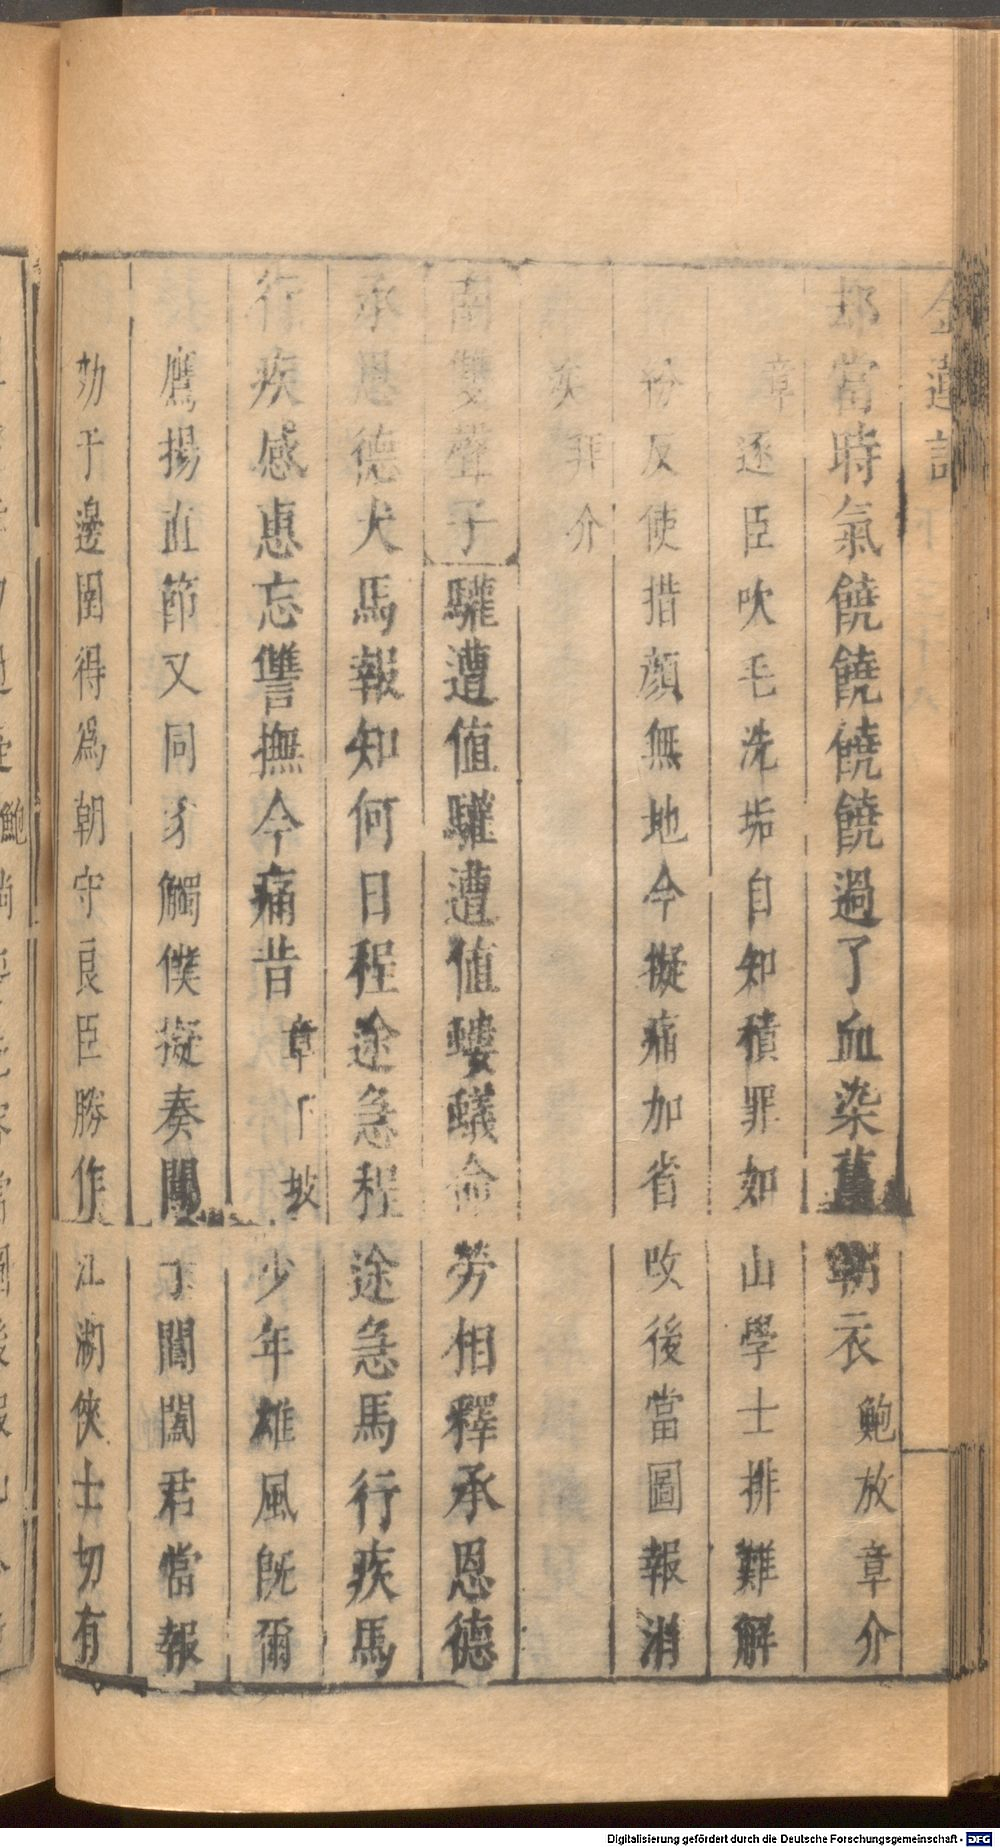 金蓮記 下
却當時氣饒饒饒饒過了血染舊朝衣鮑放章介
章逐臣吹毛洗垢自知積罪如山學士排難解
紛反使措顏無地今擬痛加省改後當圖報消
災拜介
南雙聲子驩遭值驩遭值螻蟻命勞相釋承恩德
承恩德犬馬報知何日程途急程途急馬行疾馬
行疾感惠忘讐撫今痛昔章下坡少年雄風旣爾
鷹揚直節又同豸觸僕擬奏聞閶闔君當報
効于邊圉得爲朝守良臣勝作江湖俠士切有
Digitalisierung gefördert durch die Deutsche Forschungsgemeinschaft - DFG